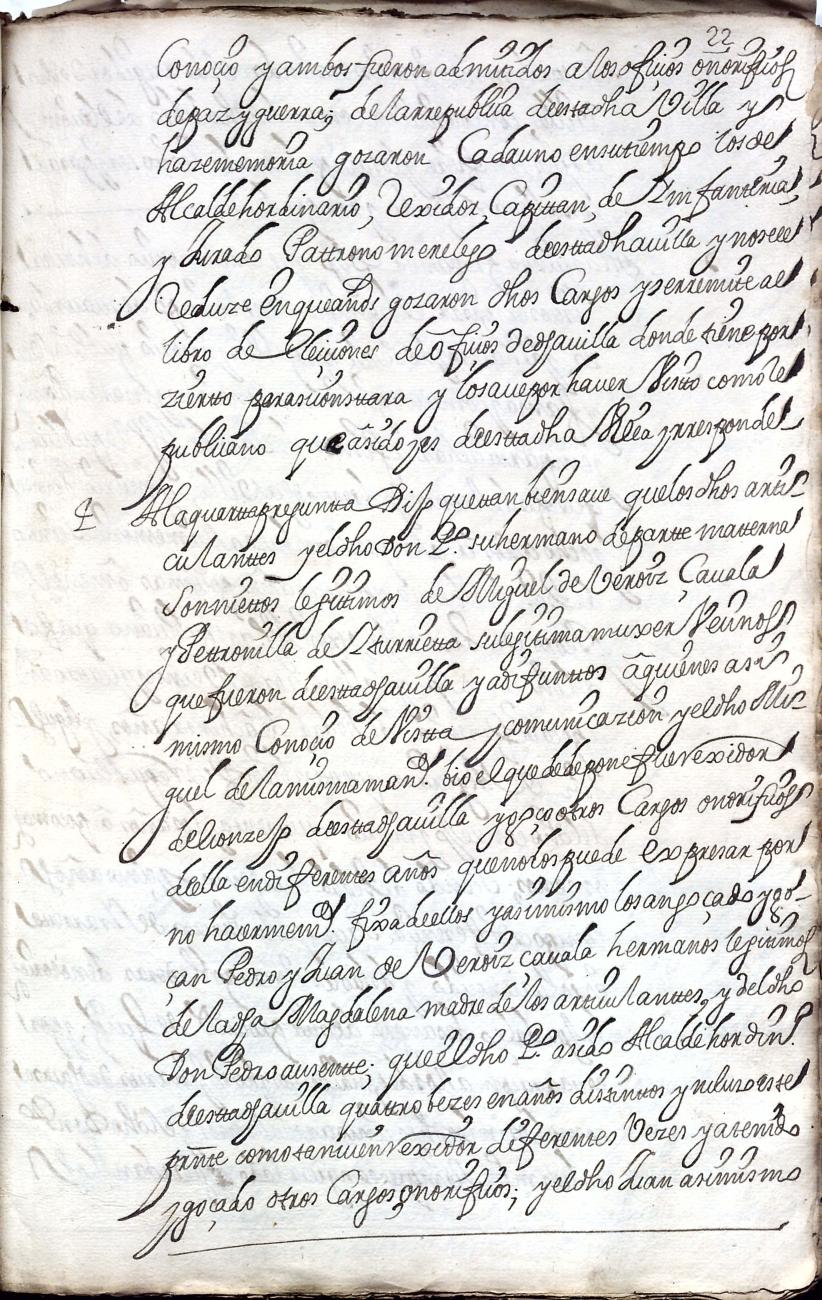 22
Conoçio y ambos fueron admitidos a los ofiçios onorifiços
de paz y guerra; de la rrepublica de esta dha Villa y
haze memoria goçaron Cada uno en su tiempo los de
Alcalde hordinario, Rexidor, Capitan, de Ynfanteria,
y Jurado Pattrono merelego de estta dha villa y no se le
Reduze en que años gozaron dhos Cargos y se rremite al
libro de Eleiciones de ofiçios de dha villa donde tiene por
ziertto para su constara y lo save por haver Visto como es
publicano que a sido es de estta dha Villa y rresponde
4 A la quartta pregunta Dijo que tanbien save que los dhos arti-
culanttes y el dho Don P.º su hermano de partte matterna
Son niettos lexitimos de Miguel de Veroiz Çavala
y Pettronilla de Yturrietta su lexitima muxer Veçinos
que fueron de estta dha villa ya difunttos a quienes asi
mismo Conoçio de Vistta y comunicazion y el dho Mi-
guel de la misma man.ª bio el que depone fue rrexidor
del conzejo de estta dha villa y goço otros Cargos onorifiços
de ella en diferentes años que no los puede expresar por
no haver mem.ª fixa de ellos y asimismo los an goçado y go-
çan Pedro y Juan de Veroiz çavala hermanos lexitimos
de la dha Magdalena madre de los articulanttes, y del dho
Don Pedro ausentte; que el dho P.º a sido Alcalde hordin.º
de estta dha villa quattro bezes en años distinttos y ncluso este
pressnte como tanvien rrexidor diferentes Vezes y a tenido
y goçado otros Cargos onorifiços; y el dho Juan asimismo